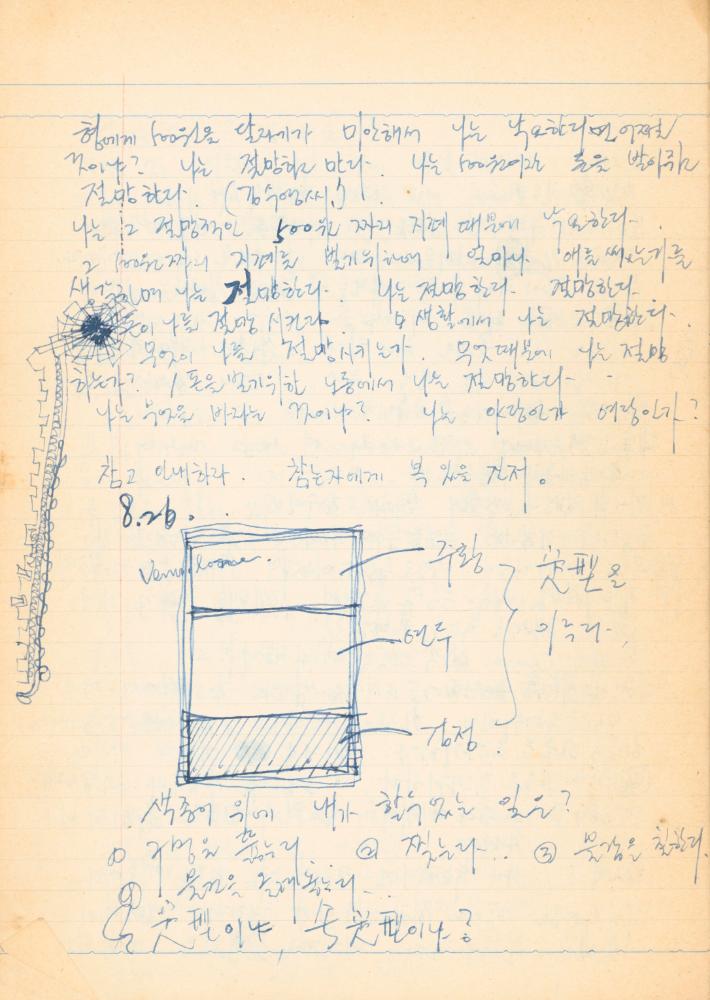 형에게 500원을 달라기가 미안해서 나는 낙오한다면 어쩔
것이냐? 나는 절망하고 만다. 나는 500원이라는 돈을 받아쥐고
절망한다. (김수영씨!)
나는 그 절망적인 500원 짜리 지폐 때문에 낙오한다.
그 500원 짜리 지폐를 벌기위하여 얼마나 애를 쓰는가를
생각하며 나는 절망한다. 나는 절망한다. 절망한다.
나를 절망 시키라. 생활에서 나는 절망한다.
무엇이 나를 절망시키는가. 무엇때문에 나는 절망
하는가? 돈을 벌기 위한 노릇에서 나는 절망한다.
나는 무엇을 바라는 것이냐? 나는 야망인가
참고 인내하라. 참는자에게 복 있을 진저.
8.26.
주황
英型을
연두
이루다.
검정
색종이 위에 내가 할 수 있는 일은?
① 구멍을 뚫는다. ② 찢는다.. ③ 물감을 칠한다.
④ 물건을 올려놓는다.
型이냐, 型이냐?